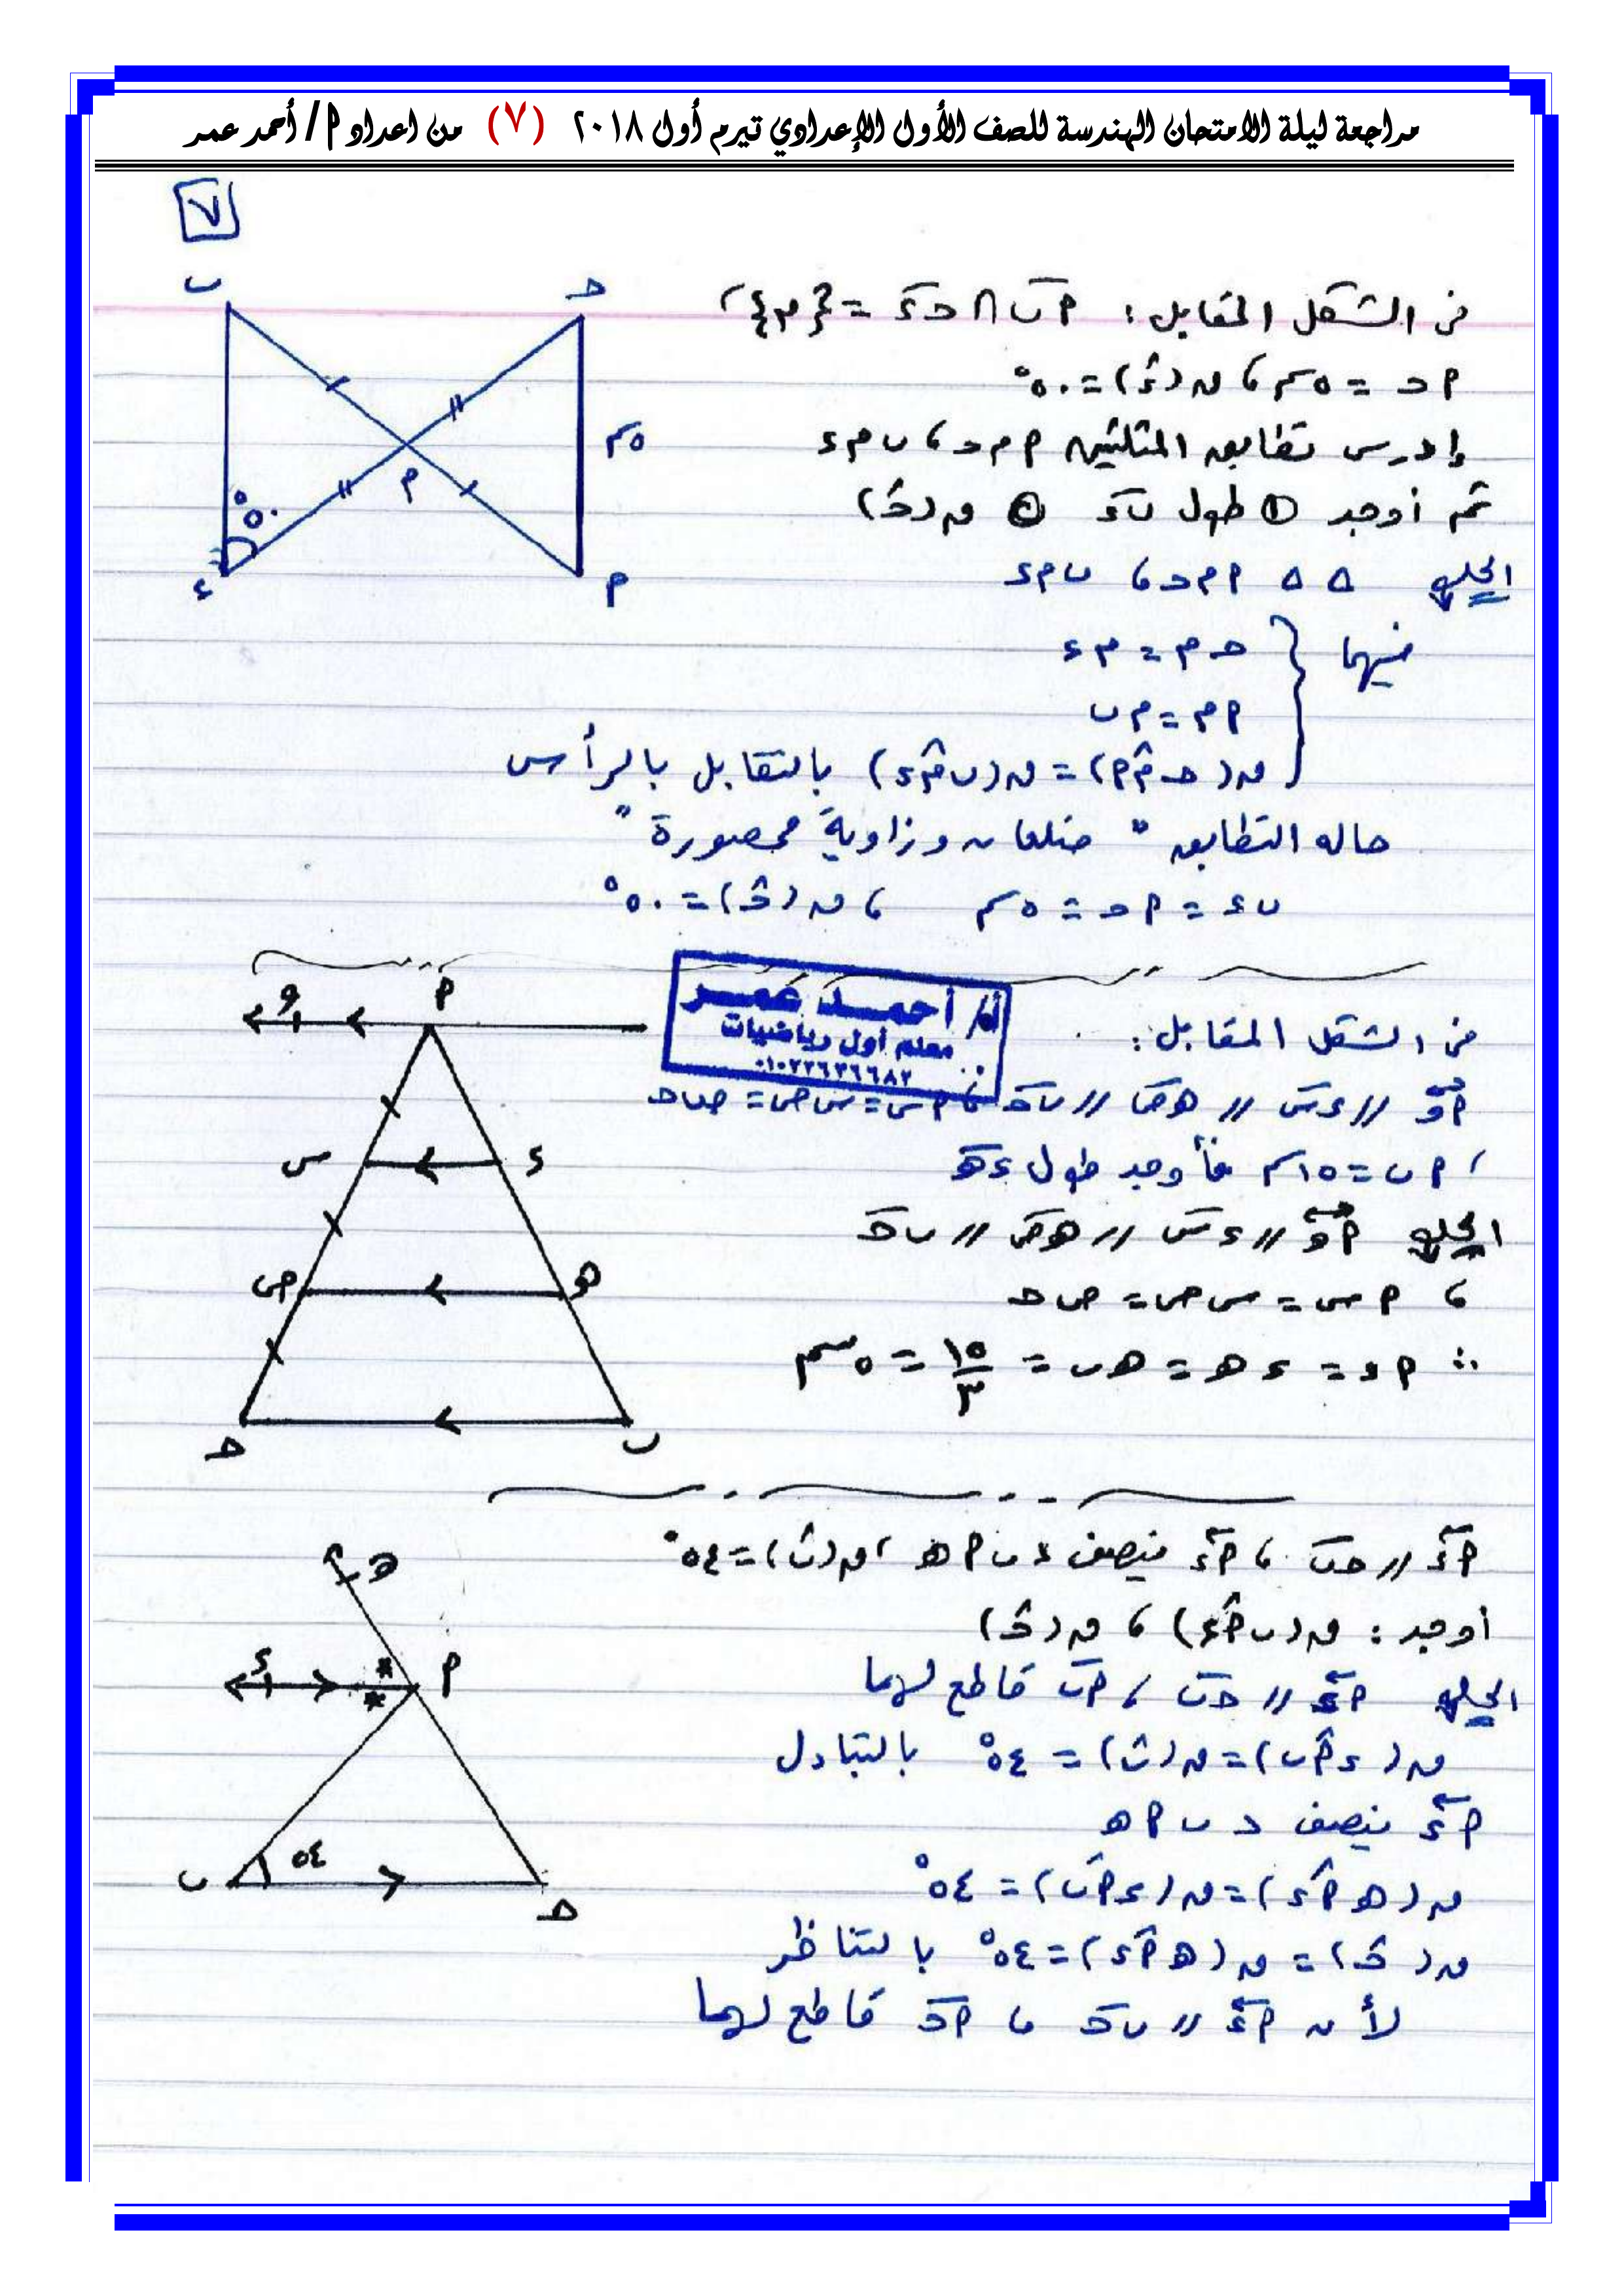 مراجعة ليلة الامتحان الهندسة للصف الأول الإعدادي تيرم أول ٢٠١٨ (٧) من اعداد أ/ أحمد عمر
٧
فى الشكل المقابل : أب ∩ حـ ء = {م} ،
أ حـ = ٥ سم ، ق(ء) = ٥٠°
إدرس تطابق المثلثين أ م حـ ، ب م ء
ثم أوجد ① طول ب ء ② ق(حـ)
الحل △ △ أ م حـ ، ب م ء
فيهما { حـ م = م ء
أ م = م ب
ق(حـ م أ) = ق(ب م ء) بالتقابل بالرأس
حاله التطابق " ضلعان وزاوية محصورة "
ب ء = أ حـ = ٥ سم ، ق(حـ) = ٥٠°
ب حـ
٥ سم
٥٠° م
ء أ
أ/ أحمد عمر
معلم أول رياضيات
٠١٠٢٢٦٣٦٦٨٢
فى الشكل المقابل :
أو // ء س // هـ ص // ب حـ ، أ س = س ص = ص حـ
، أ ب = ١٥ سم فأوجد طول ء هـ
الحل أو // ء س // هـ ص // ب حـ
، أ س = س ص = ص حـ
∴ أ ء = ء هـ = هـ ب = ١٥/٣ = ٥ سم
و أ
س ء
ص هـ
حـ ب
أ ء // حـ ب ، أ ء ينصف ∠ ب أ هـ ، ق(ب) = ٥٤°
أوجد : ق(ب أ ء) ، ق(حـ)
الحل أ ء // حـ ب ، أ ب قاطع لهما
ق(ء أ ب) = ق(ب) = ٥٤° بالتبادل
أ ء ينصف ∠ ب أ هـ
ق(هـ أ ء) = ق(ء أ ب) = ٥٤°
ق(حـ) = ق(هـ أ ء) = ٥٤° بالتناظر
لأن أ ء // ب حـ ، أ حـ قاطع لهما
هـ
ء أ
ب ٥٤ حـ